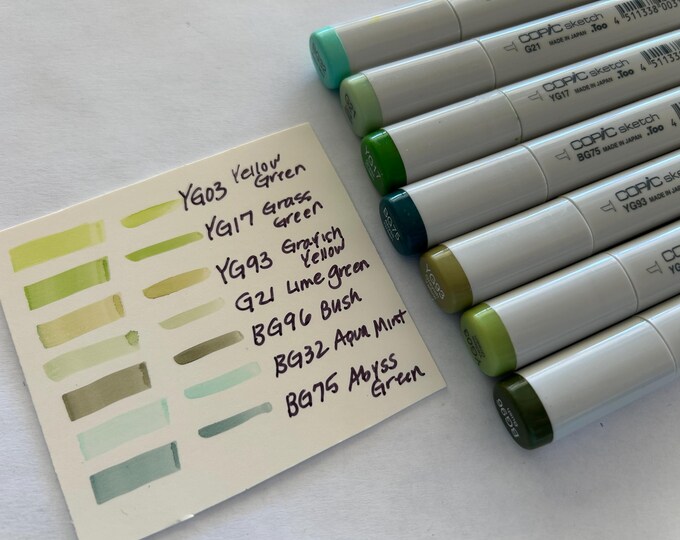 YG03 Yellow
Green
YG17 Grass
Green
YG93 Grayish
Yellow
G21 Lime Green
BG96 Bush
BG32 Aqua Mint
BG75 Abyss
Green
COPIC sketch
G21 MADE IN JAPAN .Too
4 511338 003
COPIC sketch
YG17 MADE IN JAPAN .Too
4 5113
COPIC sketch
BG75 MADE IN JAPAN .Too
COPIC sketch
YG93
COPIC
YG
G21
YG17
BG75
YG93
YG03
BG96